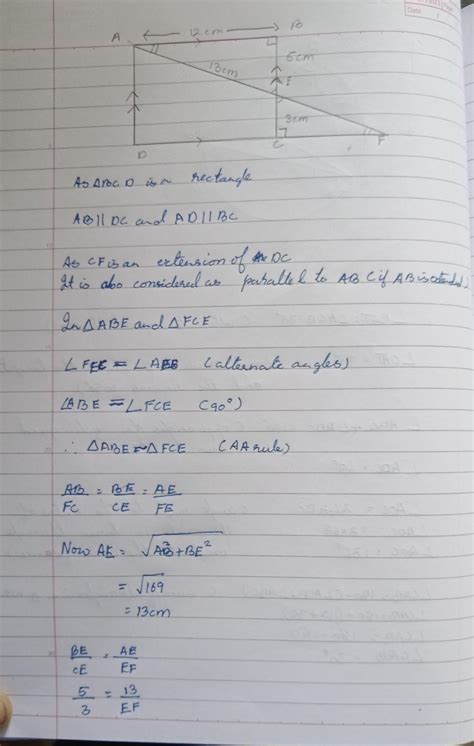 Date
12cm
A
B
5cm
13cm
E
3cm
D
C
F
As ABCD is a rectangle
AB || DC and AD || BC
As CF is an extension of DC
It is also considered as parallel to AB (if AB is extended)
In △ABE and △FCE
(alternate angles)
∠ABE = ∠FCE (90°)
∴ △ABE ~ △FCE (AA rule)
AB/FC = BE/CE = AE/FE
Now AE = √AB²+BE²
= √169
= 13cm
BE/CE = AE/EF
5/3 = 13/EF